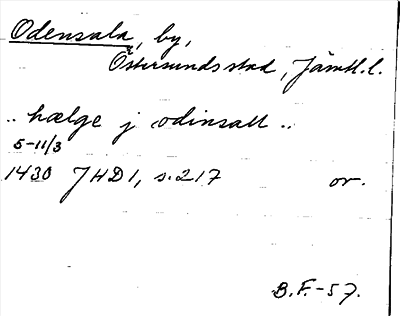 Odensala, by,
Östersunds stad, Jämtl.l.
.. hælge j odinsall ..
5-11/3
1430 JHD1, s.217 or.
B.F.-57.